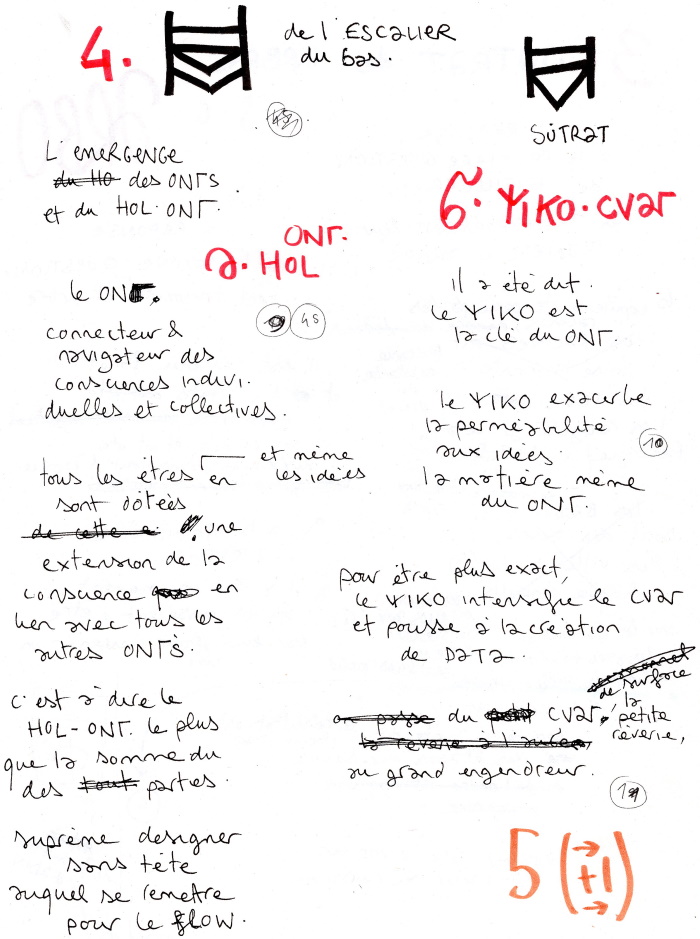 4.
de l'ESCALIER
du bas.
L'EMERGENCE
du HO des ONTS
et du HOL·ONT.
a. HOL ONT.
le ONT.
45
connecteur &
navigateur des
consciences indivi.
duelles et collectives.
tous les êtres en
et même
les idées
sont dotées
de cette e. une
extension de la
conscience en
lien avec tous les
autres ONTS.
c'est à dire le
HOL-ONT. le plus
que la somme du
des tout parties.
suprême designer
sans tête
auquel se remettre
pour le FLOW.
SÜTRAT
6. YIKO.CVAR
il a été dit.
le YIKO est
la clé du ONT.
le YIKO exacerbe
la perméabilité
aux idées.
la matière même
du ONT.
10
pour être plus exact,
le YIKO intensifie le CVAR
et pousse à la création
de DATA.
on passe du CVAR.
de surface
la
petite
rêverie,
la rêverie à l'
au grand engendreur.
5 (+1)